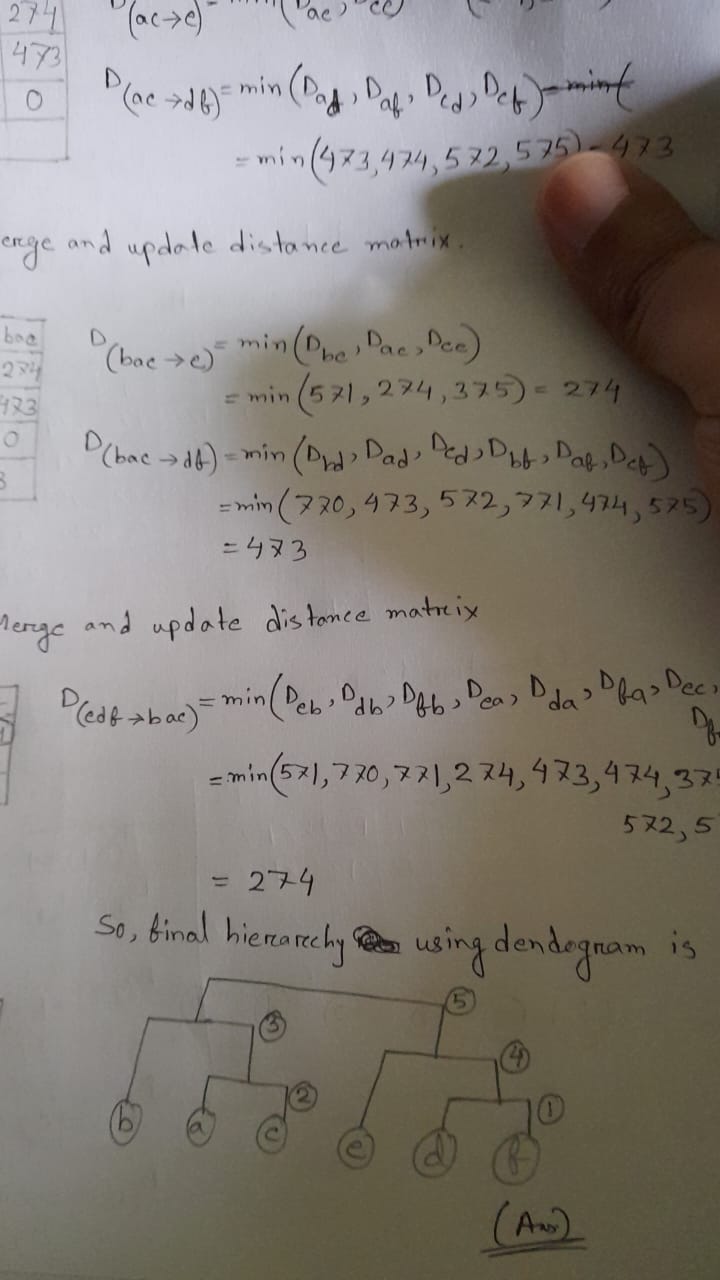 274
473
0
D(ac→e) = min(Dae, Dce)
D(ac→df) = min(Dad, Daf, Dcd, Dcf)
= min(473, 474, 572, 575) = 473
erge and update distance matrix.
bac
274
473
0
3
D(bac→e) = min(Dbe, Dae, Dce)
= min(571, 274, 375) = 274
D(bac→df) = min(Dbd, Dad, Dcd, Dbf, Daf, Dcf)
= min(770, 473, 572, 771, 474, 575)
= 473
Merge and update distance matrix
D(edf→bac) = min(Deb, Ddb, Dfb, Dea, Dda, Dfa, Dec,
= min(571, 770, 771, 274, 473, 474, 375
572, 5
= 274
So, final hierarchy using dendogram is
5
3
4
2
1
b a c e d f
(Ans)